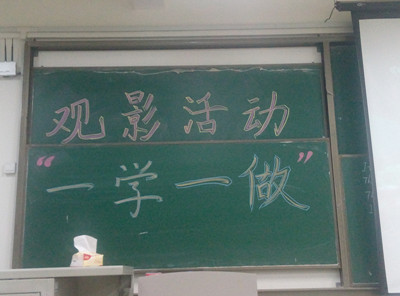 观影活动
“一学一做”